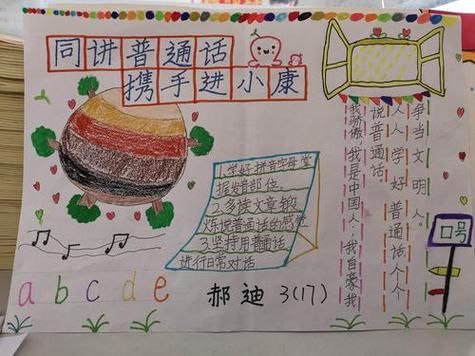 同讲普通话
携手进小康
1.学好拼音字母掌
握发音部位。
2.多读文章锻
炼说普通话的感觉
3.坚持用普通话
进行日常对话
我骄傲,我是中国人,我自豪我
说普通话。
人人学好普通话人人
争当文明人。
口号
a b c d e
郝迪 3(17)